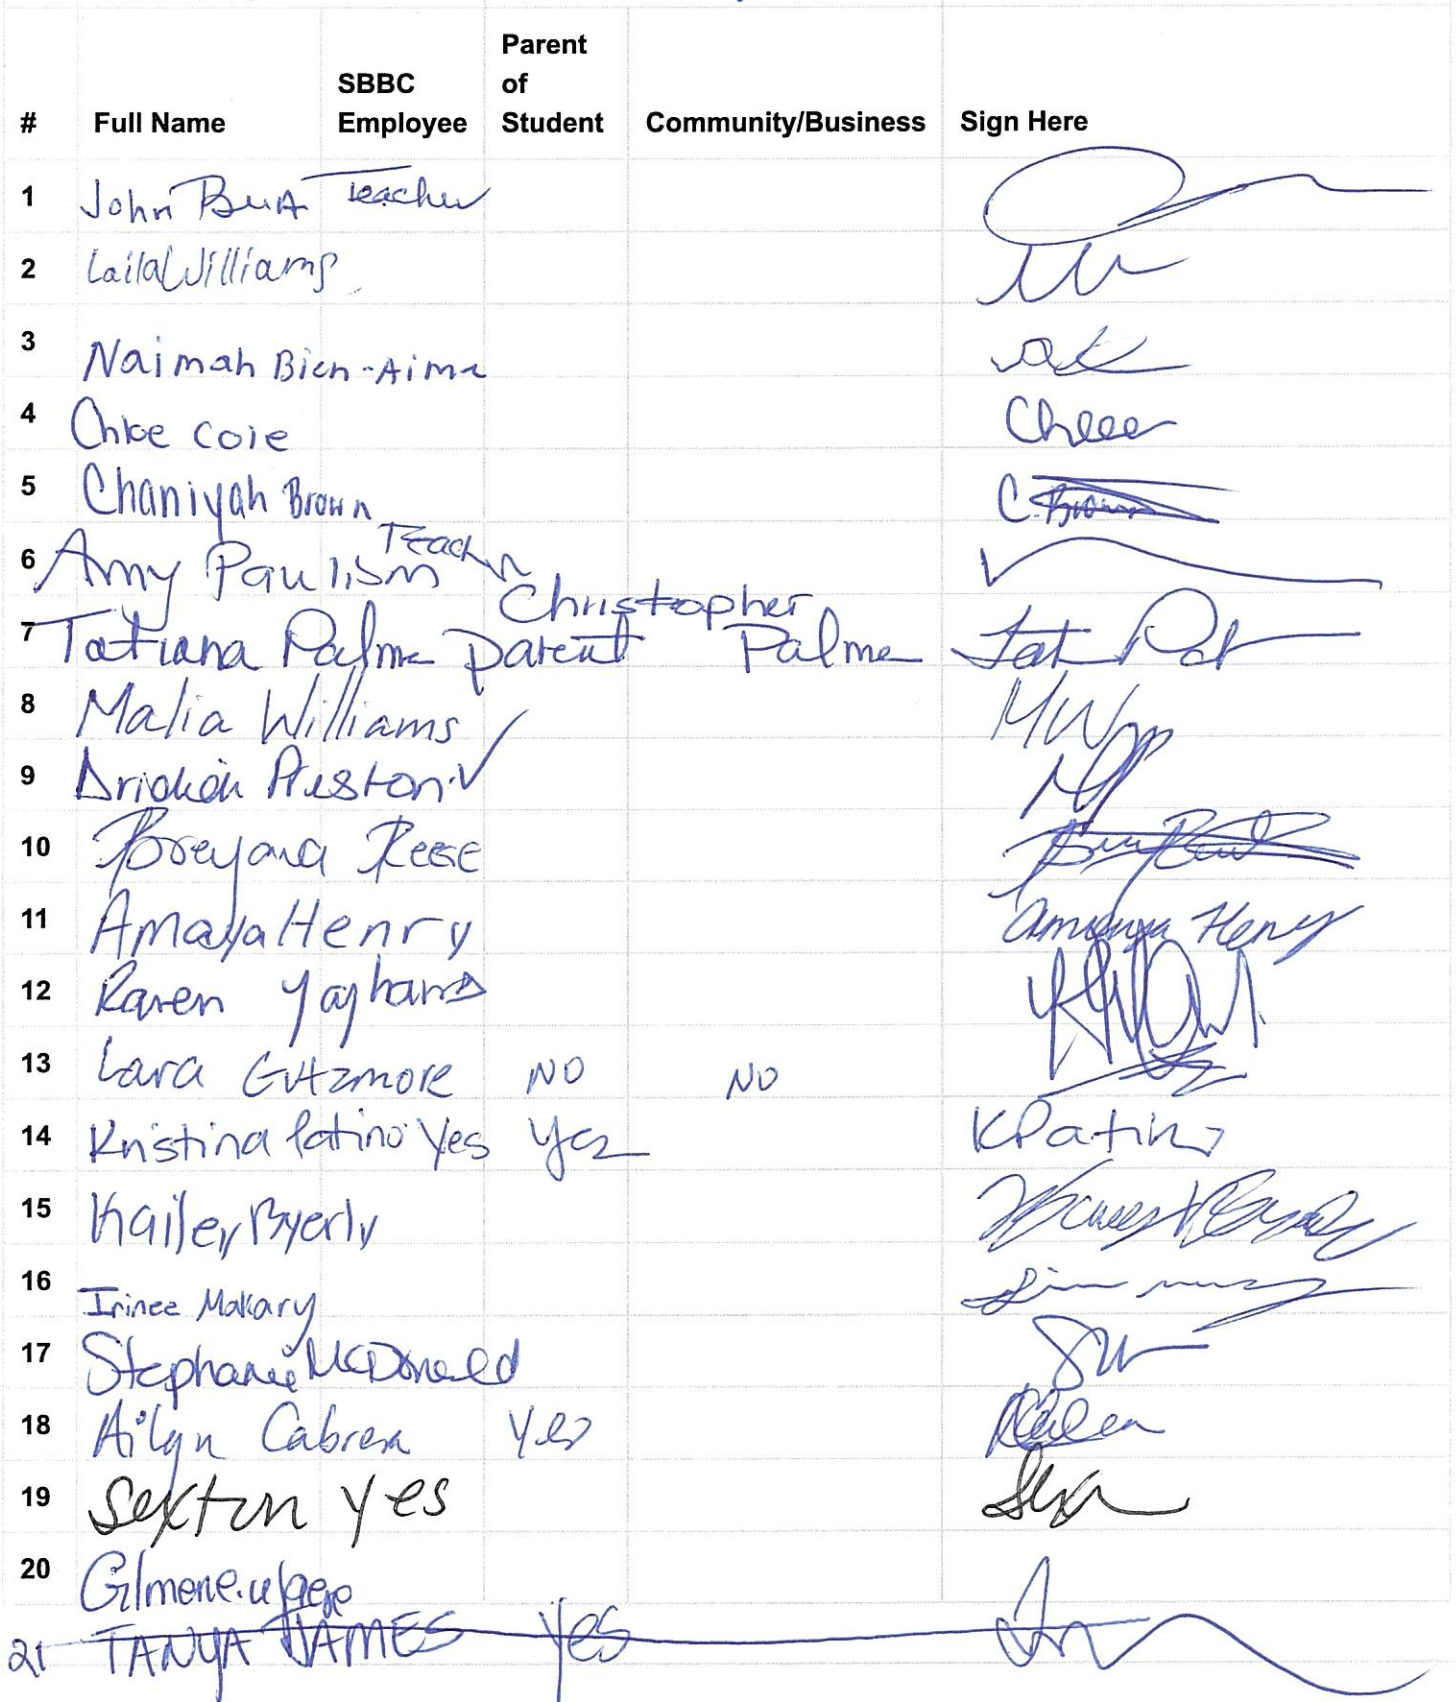 # Full Name SBBC Employee Parent of Student Community/Business Sign Here
1 John Teacher
2 Laila Williams
3 Naimah Bien-Aime
4 Chloe Cole
5 Chaniyah Brown C. Brown
6 Amy Teacher
7 Tatiana Palma parent Christopher Palma
8 Malia Williams MW
9 Preston ✓
10 Breyana Reese
11 Amaya Henry Amaya Henry
12
13 Lara Gutzmore NO NO
14 Kristina Patino Yes Yes K Patino
15 Kailey Byerly
16 Irinee Makary
17 Stephanie McDonald
18 Ailyn Cabrera Yes
19 Sexton yes
20
21 TANYA JAMES Yes